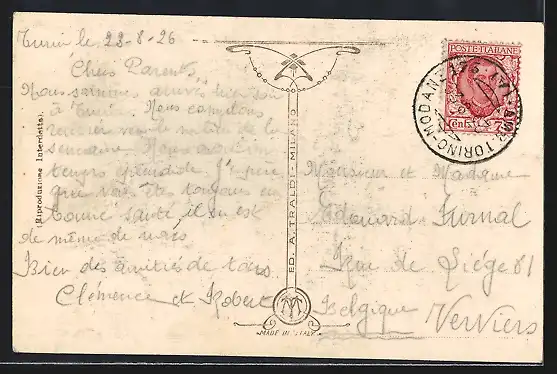 Turin le 28-8-26
Chers Parents,
Nous sommes arrivés hier soir
à Turin. Nous comptons
revenir vers le milieu de la
semaine. Nous avons un
temps splendide. J'espère
que vous êtes toujours en
bonne santé, il en est
de même de nous,
Bien des amitiés de tous
Clémence et Robert
Riproduzione Interdetta.
ED. A. TRALDI - MILANO
MADE IN ITALY
POSTE ITALIANE
Cent. 75
AMB. TORINO-MODANE 176
Monsieur et Madame
Edouard Furnal
Rue de Liége 81
Belgique Verviers